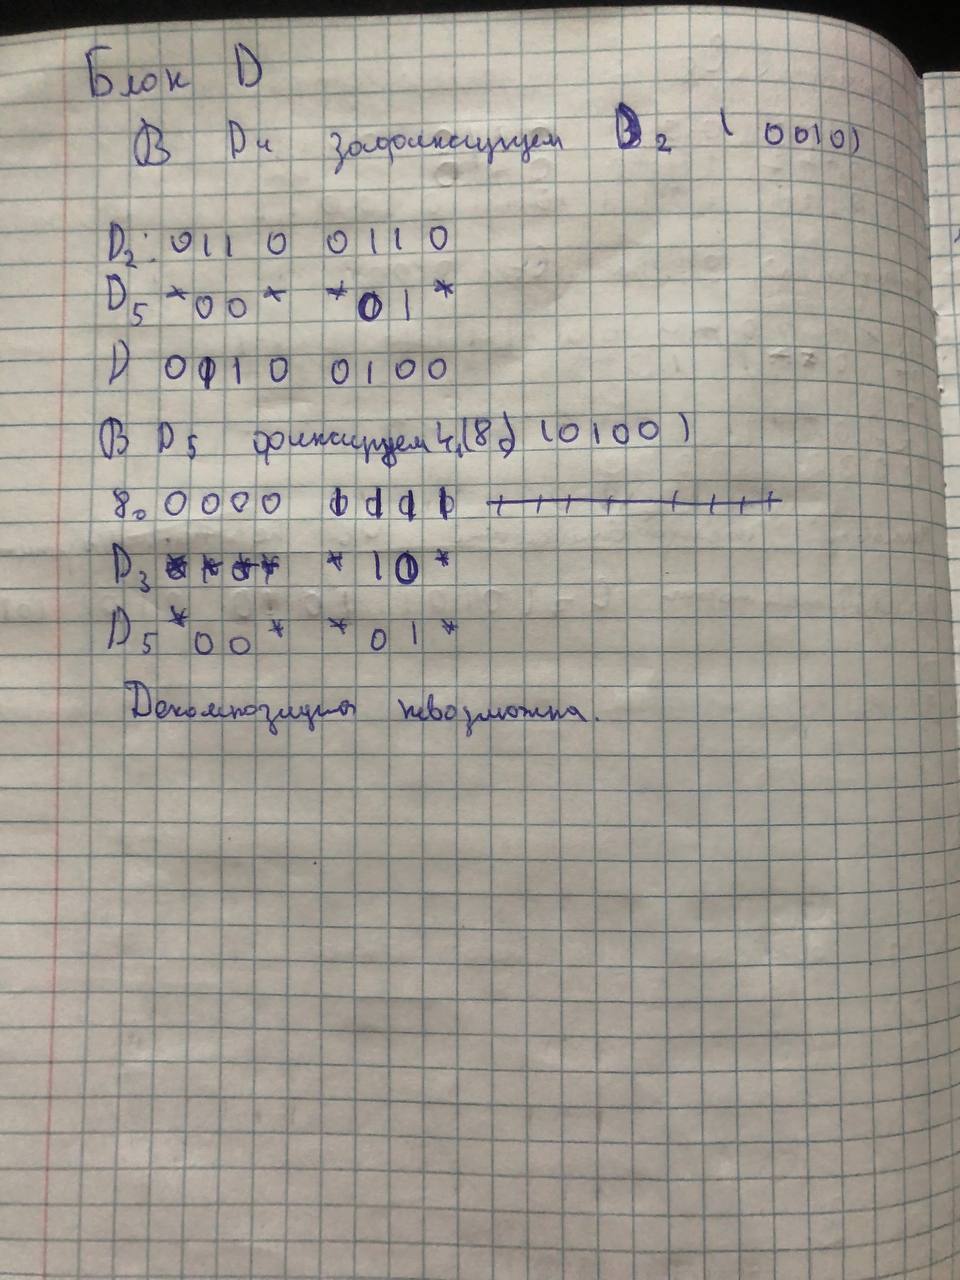 Блок D
В D4 зафиксируем D2 (0010)
D2: 0110 0110
D5 *00* *01*
D 0010 0100
В D5 фиксируем 4,(8) (0100)
8. 0000
D3 * 1 0 *
D5 *00* *01*
Декомпозиция невозможна.